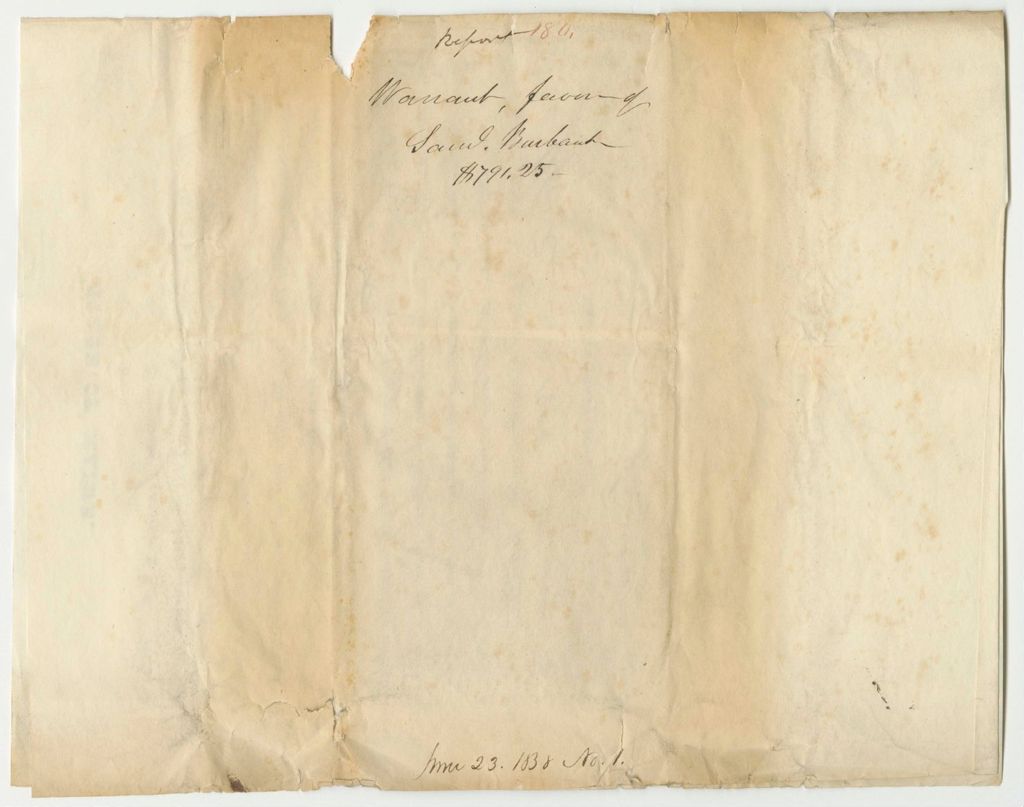 Report 180.
Warrant, favor of
Saml. Burbank
$791.25
June 23. 1838 No. 1.